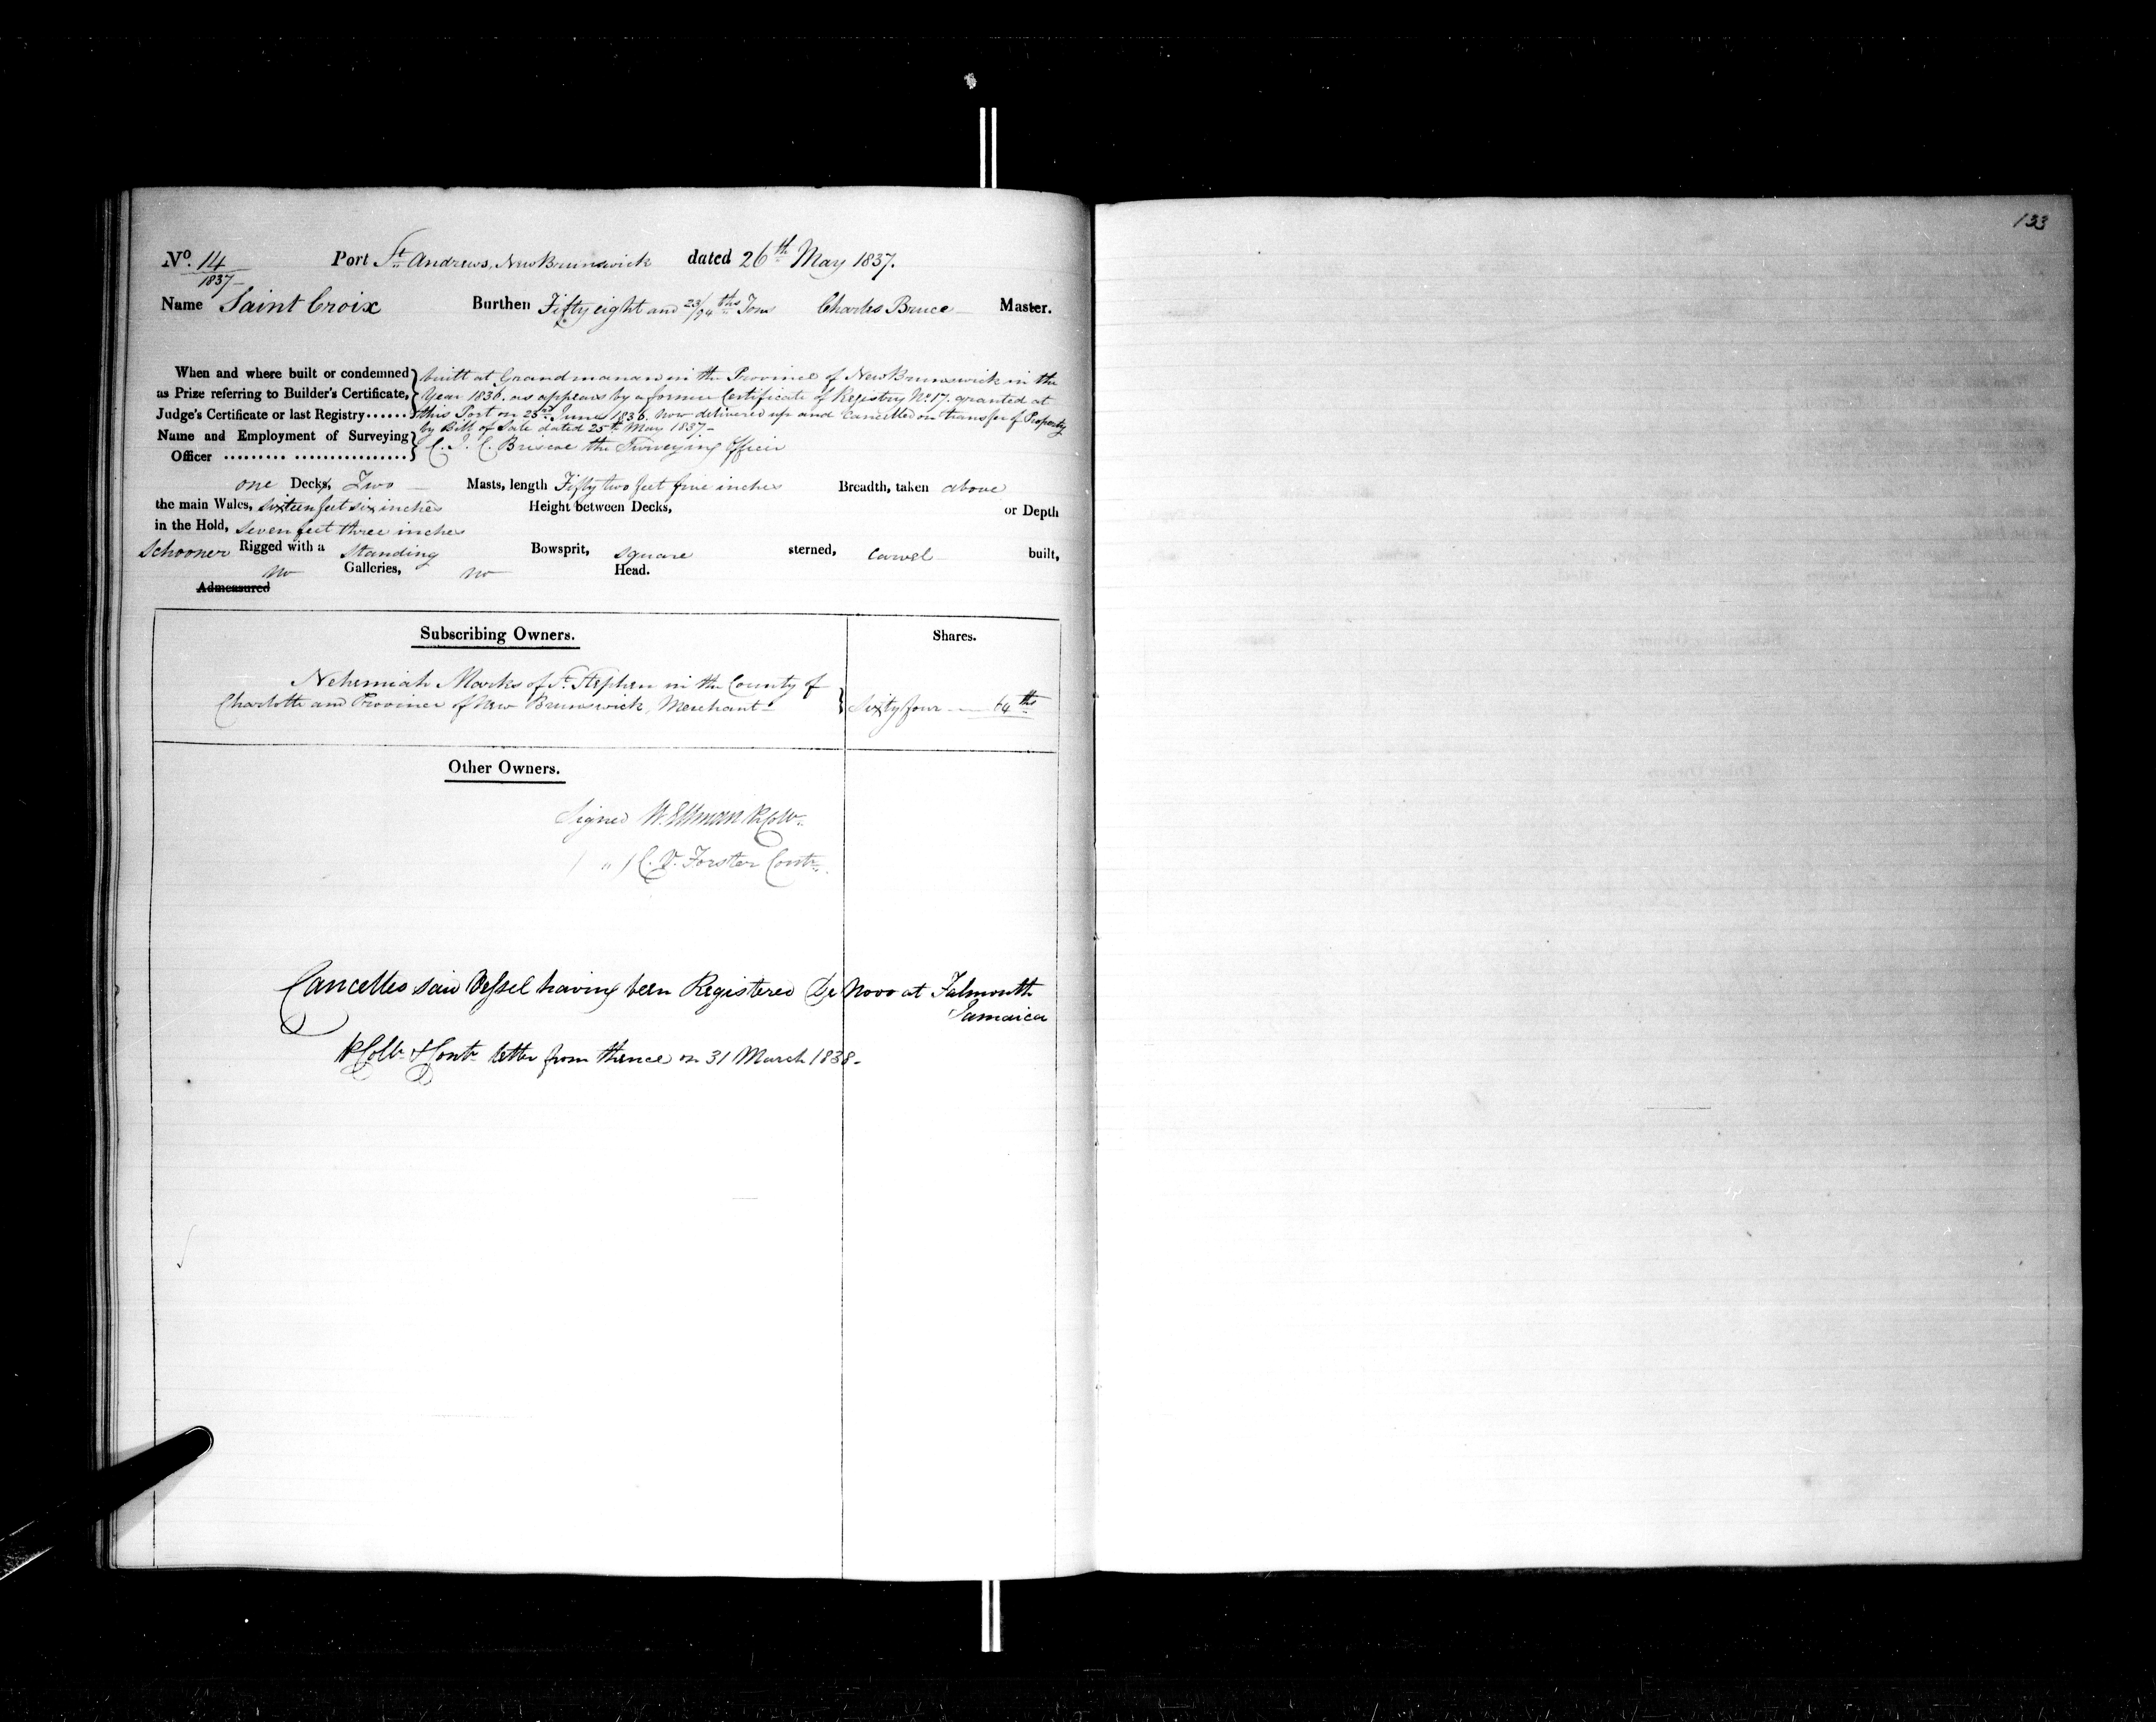 133
No. 14 Port St. Andrews, New Brunswick dated 26th May 1837.
1837
Name Saint Croix Burthen Fifty eight and 23/94ths Tons Charles Bruce Master.
When and where built or condemned
as Prize referring to Builder's Certificate,
Judge's Certificate or last Registry......
built at Grandmanan in the Province of New Brunswick in the
Year 1836. as appears by a former Certificate of Registry No. 17. granted at
this Port on 25th June 1836. now delivered up and Cancelled on transfer of Property
by Bill of Sale dated 25th May 1837-
Name and Employment of Surveying
Officer ......... ................
C. J. C. Briscoe the Surveying Officer
one Decks, Two Masts, length Fifty two feet five inches Breadth, taken above
the main Wales, sixteen feet six inches Height between Decks, or Depth
in the Hold, seven feet three inches
Schooner Rigged with a Standing Bowsprit, square sterned, carvel built,
no Galleries, no Head.
Admeasured
Subscribing Owners. Shares.
Nehemiah Marks of St. Stephen in the County of
Charlotte and Province of New Brunswick, Merchant- Sixty four 64ths
Other Owners.
Signed W. Ellman Collr.
" C. D. Forster Contr.
Cancelled said Vessel having been Registered De Novo at Falmouth
Jamaica
Collr & Contr letter from thence on 31 March 1838-